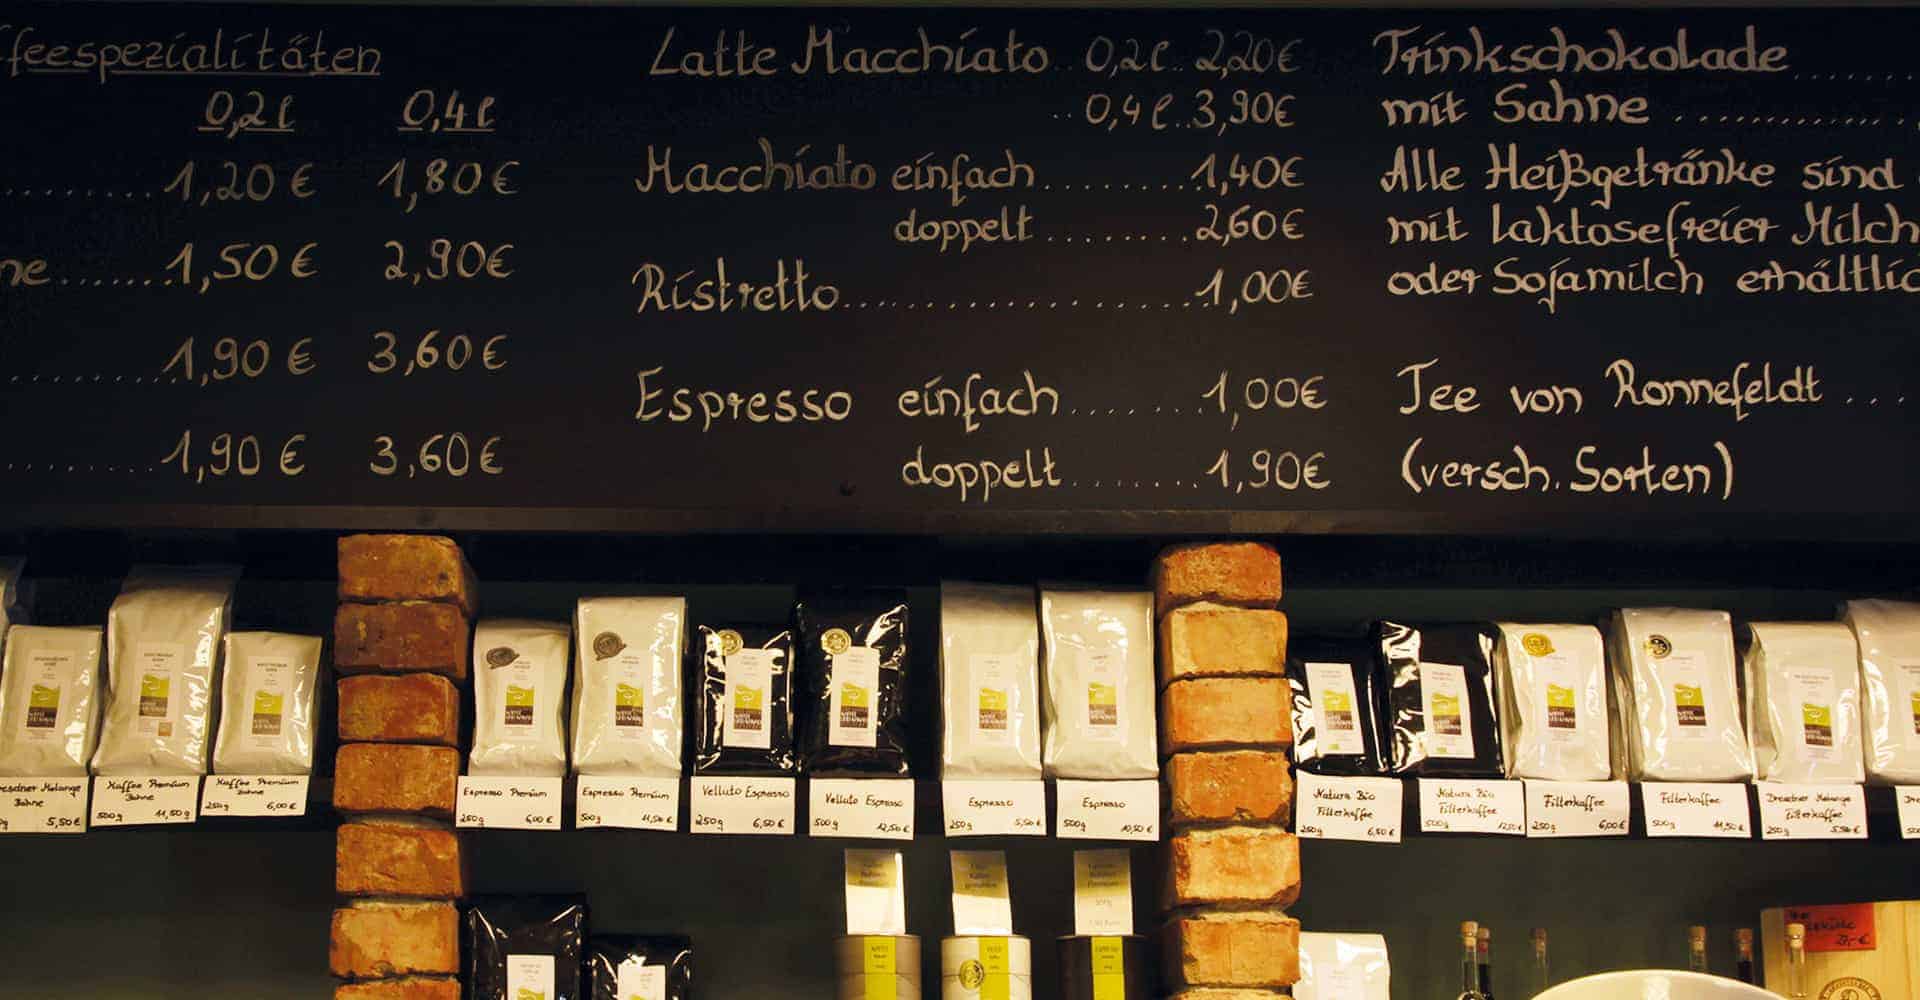 ffeespezialitäten
0,2l 0,4l
........1,20€ 1,80€
ne.......1,50€ 2,90€
..........1,90€ 3,60€
.........1,90€ 3,60€
Latte Macchiato..0,2l..2,20€
..0,4l..3,90€
Macchiato einfach.........1,40€
doppelt........2,60€
Ristretto....................1,00€
Espresso einfach.......1,00€
doppelt........1,90€
Trinkschokolade.......
mit Sahne.............
Alle Heißgetränke sind
mit laktosefreier Milch
oder Sojamilch erhältlic
Tee von Ronnefeldt....
(versch. Sorten)
resdner Melange
Bohne
5,50€
Kaffee Premium
Bohne
500g 11,50€
Kaffee Premium
Bohne
250g 6,00€
Espresso Premium
250g 6,00€
Espresso Premium
500g 11,50€
Velluto Espresso
250g 6,50€
Velluto Espresso
500g 12,50€
Espresso
250g 5,50€
Espresso
500g 10,50€
Natura Bio
Filterkaffee
250g 6,50€
Natura Bio
Filterkaffee
500g 12,50€
Filterkaffee
250g 6,00€
Filterkaffee
500g 11,50€
Dresdner Melange
Filterkaffee
250g 5,50€